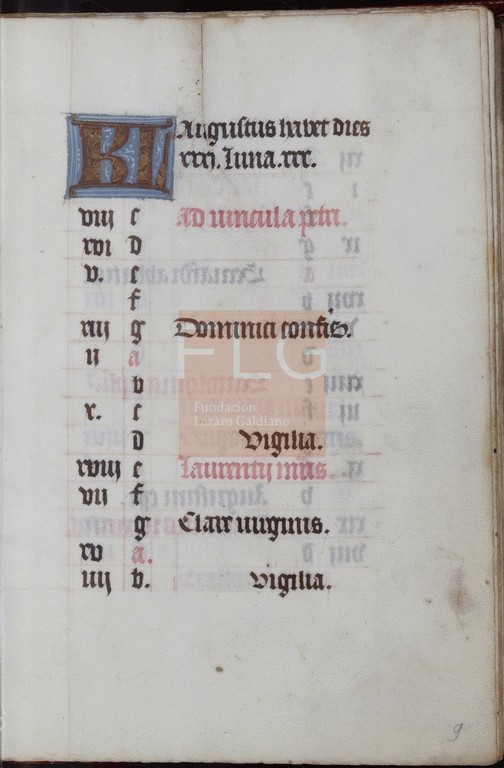 KL Augustus habet dies
xxxj. Luna. xxx.
viij c Ad vincula petri.
xvi D
v. e
f
xiij g Dominici confes.
ij a
b
x. c
d Vigilia.
xviij e Laurentij mris.
vij f
g Clare virginis.
xv a.
iiij b. Vigilia.
FLG
Fundación
Lázaro Galdiano
9